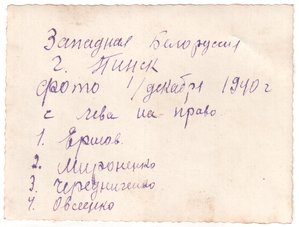 Западная Белорусия
г. Пинск
Фото 1/декабря 1940 г
с лева на право.
1. Ершов.
2. Мироненко
3. Чередниченко
4. Овсеенко